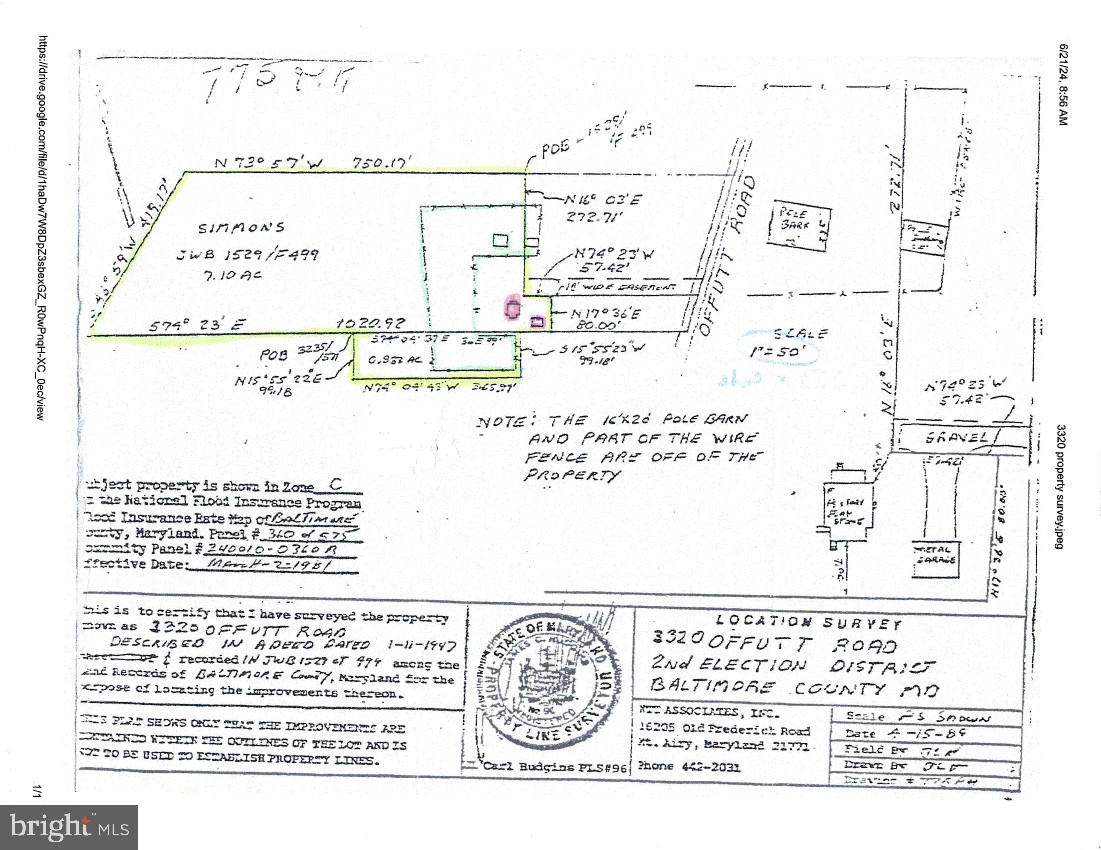 https://drive.google.com/file/d/1haDw7W8DpZ3sbexGZ_R0wPnqH-XC_0ec/view
6/21/24, 8:56 AM
3320 property survey.jpeg
1/1
N 73° 57' W 750.17'
POB
N16° 03'E
272.71'
SIMMONS
JWB 1529/F499
7.10 AC
415.17'
N74° 23'W
57.42'
WIDE EASEMENT
N17°36'E
80.00'
S74° 23' E 1020.92
POB 3235/571
0.833 AC
S15°55'23"W
99.18'
N15°55'22"E
99.18
N74° 04' 43" W 365.99'
OFFUTT ROAD
POLE
BARN
WIRE FENCE
272.71'
N 16° 03' E
SCALE
1"=50'
N74°23'W
57.42'
GRAVEL
METAL
GARAGE
NOTE: THE 16'X20' POLE BARN
AND PART OF THE WIRE
FENCE ARE OFF OF THE
PROPERTY
bject property is shown in Zone C
the National Flood Insurance Program
lood Insurance Rate Map of BALTIMORE
ounty, Maryland. Panel # 360 of 575
ommunity Panel # 240010-0360 B
ffective Date: March-2-1981
his is to certify that I have surveyed the property
nown as 3320 OFFUTT ROAD
DESCRIBED IN A DEED DATED 1-11-1947
& recorded IN JWB 1529 at 499 among the
and Records of BALTIMORE County, Maryland for the
urpose of locating the improvements thereon.
HIS PLAT SHOWS ONLY THAT THE IMPROVEMENTS ARE
ONTAINED WITHIN THE OUTLINES OF THE LOT AND IS
NOT TO BE USED TO ESTABLISH PROPERTY LINES.
STATE OF MARYLAND
PROPERTY LINE SURVEYOR
REGISTERED
Carl Hudgins PLS#96
LOCATION SURVEY
3320 OFFUTT ROAD
2nd ELECTION DISTRICT
BALTIMORE COUNTY MD
ASSOCIATES, INC.
16205 Old Frederick Road
Mt. Airy, Maryland 21771
Phone 442-2031
Scale AS SHOWN
Date 4-15-89
Field By
Drawn By
bright MLS